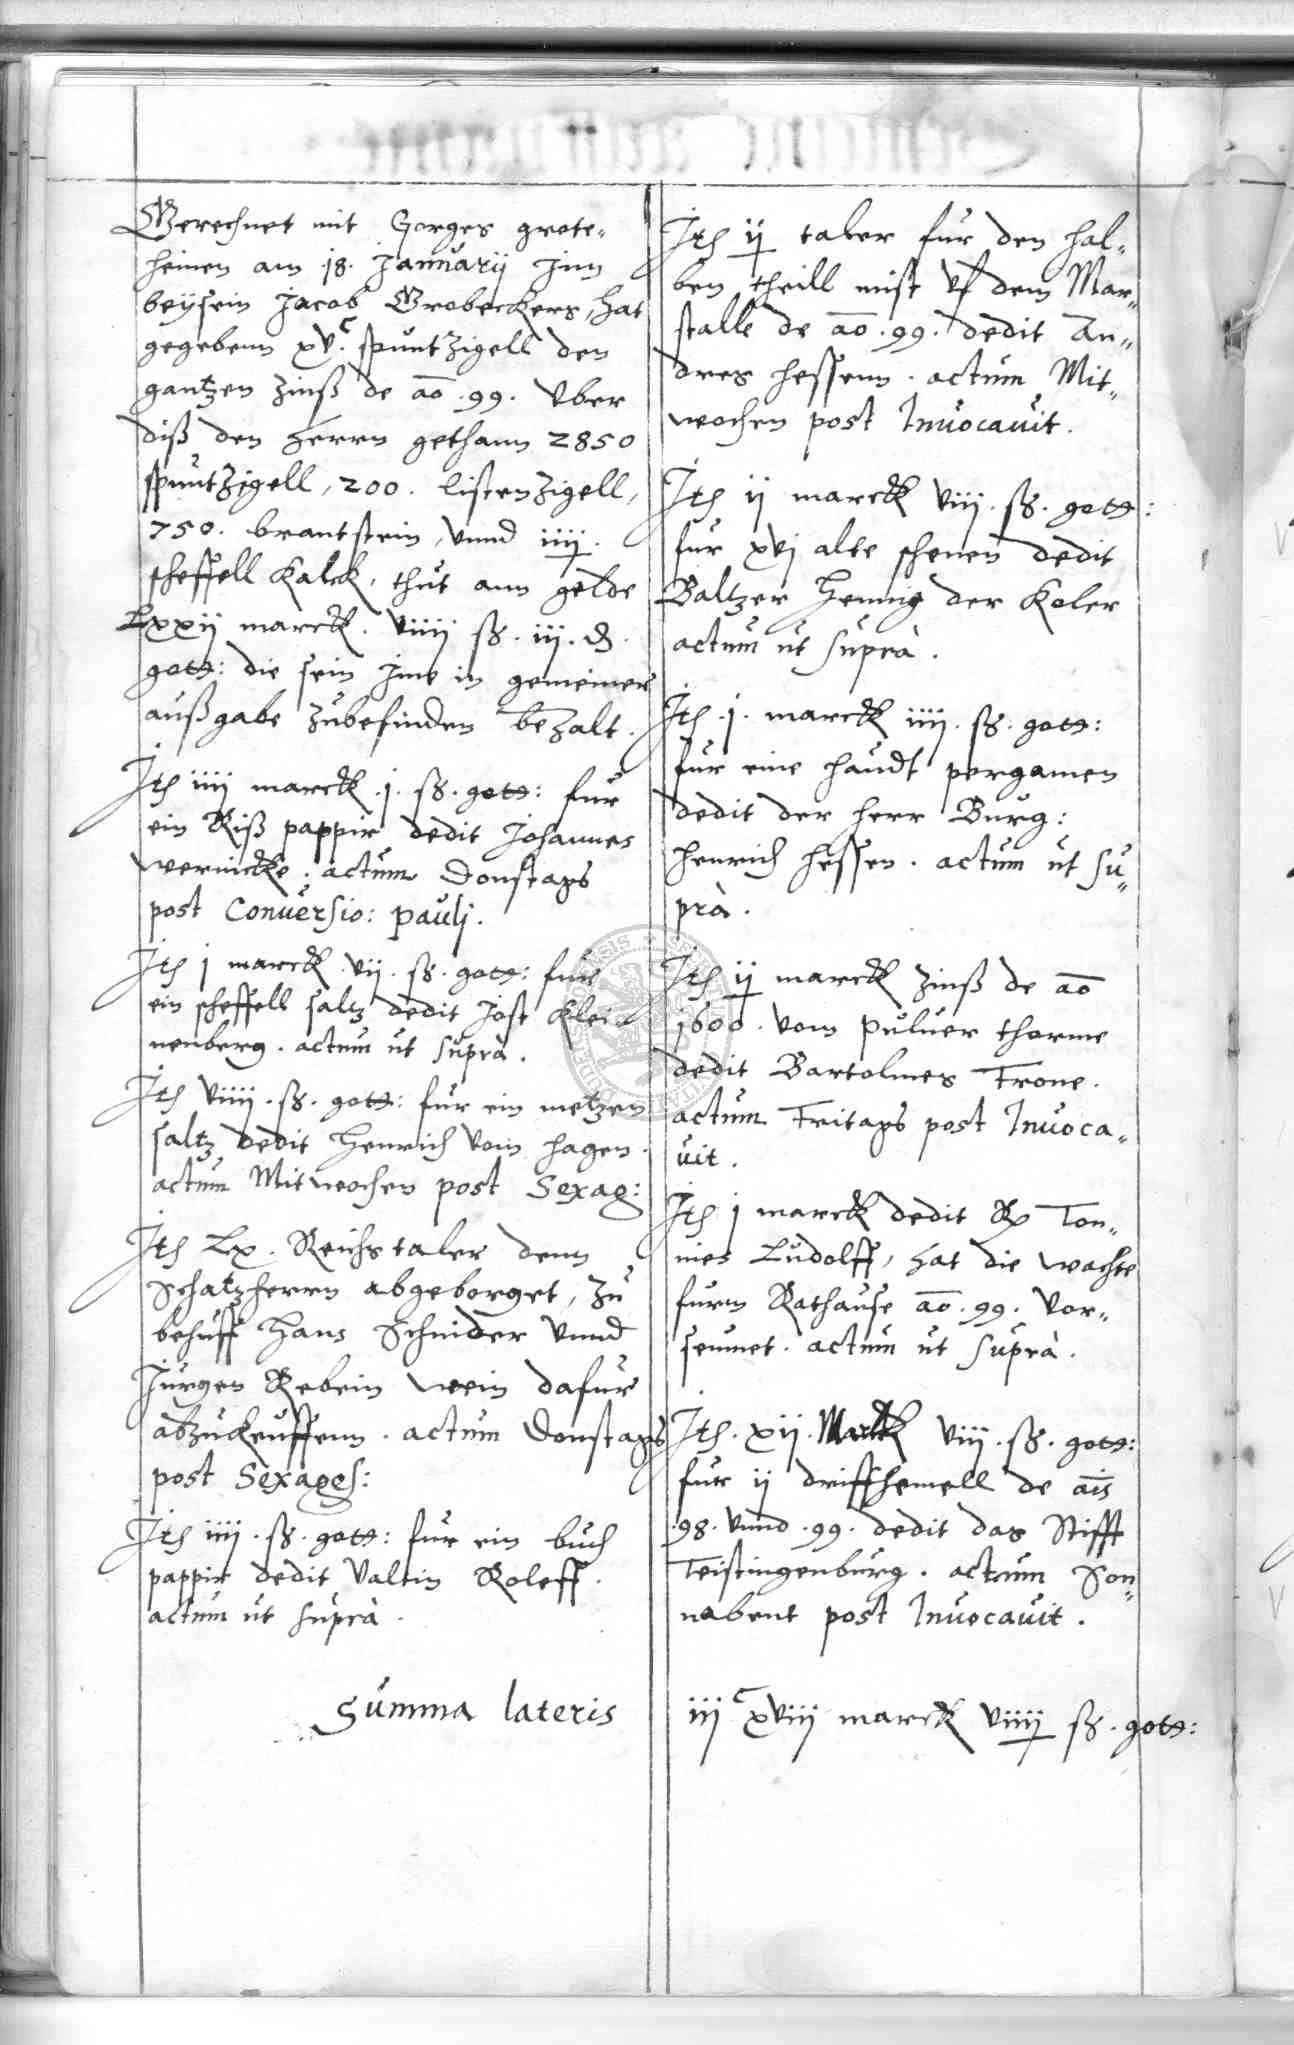 Gerechnet mit Gorges grete„
heinen am 18. Januarij Jnn
beysein Jacob Grobeckers, hat
gegebenn xv.c spuntzigell den
gantzen zinß de ao .99. Vber
diß den herrn gethann 2850
spuntzigell, 200. listenzigell,
750. brantstein, vnnd iiij.
scheffell Kalck, thut ann gelde
Lxxij marck. viiij ß. iij. d.
gott: die sein Jme in gemeiner
außgabe zubefinden bezalt.
Jtem iiij marck .j. ß. gott: fur
ein Riß pappir dedit Johannes
wernicke. actum Donstags
post Conuersio: paulj.
Jtem j marck vij. ß. gott: fur
ein scheffell saltz dedit Jost Klei
nenberg. actum ut supra.
Jtem viiij. ß. gott: fur ein metzen
saltz dedit Henrich vom hagen.
actum Mitwochen post Sexag:
Jtem Lx. Reichstaler denn
Schatzherrn abgeborget, zu
behuff Hans Schnider vnnd
Jurgen Rebein wein dafur
abzukeuffenn. actum Donstags
post Sexages:
Jtem iiij. ß. gott: fur ein buch
pappir dedit Valtin Roleff.
actum ut supra.
Summa lateris
Jtem ij taler fur den hal„
ben theill mist vf dem Mar„
stalle de ao .99. dedit An„
dres hessenn. actum Mit„
wochen post Inuocauit.
Jtem ij marck viij. ß. gott:
fur xvj alte schenen dedit
Baltzer Hennig der Koler
actum ut supra.
Jtem .j. marck iiij. ß. gott:
fur eine haudt pergamen
dedit der herr Burg:
Henrich hessen. actum ut su„
pra.
Jtem ij marck zinß de ao
1600. vom puluer thorme
dedit Bartolmes Trone.
actum Fritags post Inuoca„
uit.
Jtem j marck dedit Ton„
nies Ludolff, hat die wachte
furm Rathause ao .99. vor„
seumet. actum ut supra.
Jtem. xij. Marck viij. ß. gott:
fur ij driffhemell de ais
.98. vnnd .99. dedit das Stifft
Teistingenburg. actum Son„
nabent post Inuocauit.
iijc xviij marck viiij ß. gott: